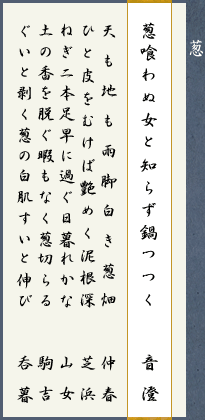 葱
葱喰わぬ女と知らず鍋つつく　音澄
天も地も雨脚白き葱畑　仲春
ひと皮をむけば艶めく泥根深　芝浜
ねぎ二本足早に過ぐ日暮れかな　山女
土の香を脱ぐ暇もなく葱切らる　駒吉
ぐいと剥く葱の白肌すいと伸び　呑暮